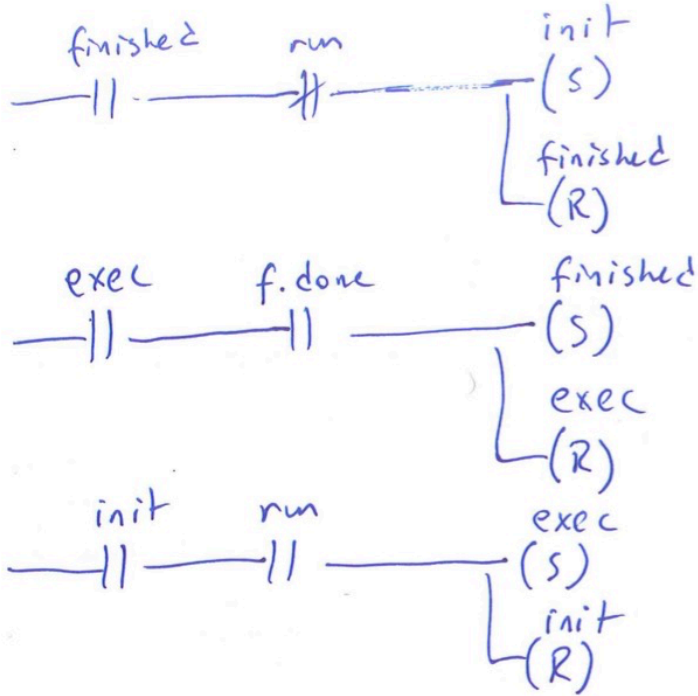 finished run init
(S)
finished
(R)
exec f.done finished
(S)
exec
(R)
init run exec
(S)
init
(R)